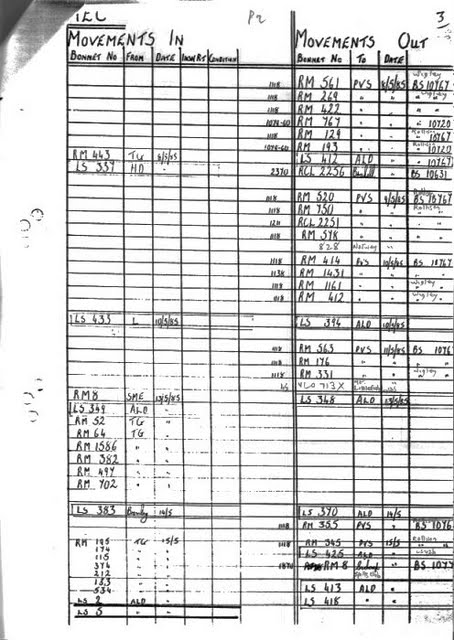 P2
3
MOVEMENTS IN
MOVEMENTS OUT
BONNET No FROM DATE INSW RT CONDITION
BONNET No TO DATE
1118 RM 561 PVS 8/5/85 Wigley BS 10767
1118 RM 269 " " Wigley "
1118 RM 422 " " " "
1076-60 RM 767 " " " 10720
1118 RM 129 " " "
1076-60 RM 193 " " 10720
RM 443 TG 8/5/85
LS 412 ALD " " 10767
LS 337 HD "
2370 RCL 2256 " BS 10631
RM 520 PVS 9/5/85 BS 10767
1118 RM 750 " " Rollston
RCL 2251 " "
1118 RM 598 " "
828 Norway "
1118 RM 414 PVS 10/5/85 BS 10767
1138 RM 1431 " "
1118 RM 1161 " " Wigley
RM 412 " " Wigley
LS 433 L 10/5/85
LS 394 ALD 10/5/85
RM 563 PVS 11/5/85 BS 1076
RM 176 " "
1118 RM 331 " " Wigley
VLO 713X
RM8 SME 13/5/85
LS 348 ALD 13/5/85
LS 349 ALD "
RM 52 TG "
RM 64 TG "
RM 1586 " "
RM 382 " "
RM 497 " "
RM 702 " "
LS 383 14/5
LS 370 ALD 14/5
1118 RM 355 PVS " BS 1076
RM 185 TG 15/5
1118 RM 345 PVS 15/5
174
LS 425 ALD "
115
374
1870 RM 8 " BS 1077
212
133
LS 413 ALD "
534
LS 2 ALD "
LS 418 " "
LS 5 " "